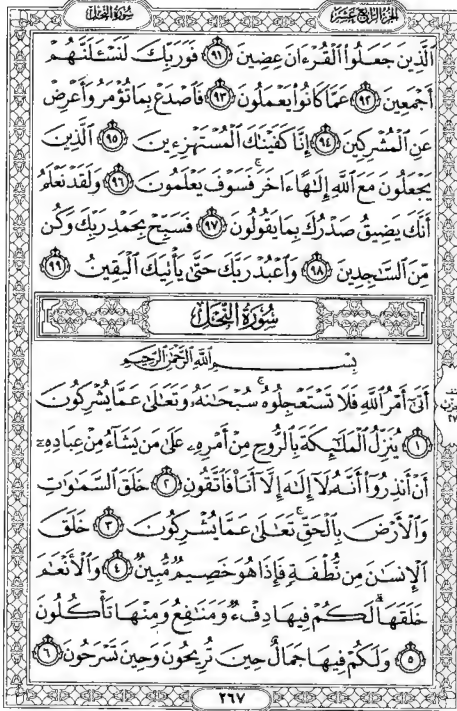 سُورَةُ النَّحْلِ
الجُزْءُ الرَّابِعَ عَشَرَ
ٱلَّذِينَ جَعَلُوا۟ ٱلْقُرْءَانَ عِضِينَ ٩١ فَوَرَبِّكَ لَنَسْـَٔلَنَّهُمْ
أَجْمَعِينَ ٩٢ عَمَّا كَانُوا۟ يَعْمَلُونَ ٩٣ فَٱصْدَعْ بِمَا تُؤْمَرُ وَأَعْرِضْ
عَنِ ٱلْمُشْرِكِينَ ٩٤ إِنَّا كَفَيْنَٰكَ ٱلْمُسْتَهْزِءِينَ ٩٥ ٱلَّذِينَ
يَجْعَلُونَ مَعَ ٱللَّهِ إِلَٰهًا ءَاخَرَ ۚ فَسَوْفَ يَعْلَمُونَ ٩٦ وَلَقَدْ نَعْلَمُ
أَنَّكَ يَضِيقُ صَدْرُكَ بِمَا يَقُولُونَ ٩٧ فَسَبِّحْ بِحَمْدِ رَبِّكَ وَكُن
مِّنَ ٱلسَّٰجِدِينَ ٩٨ وَٱعْبُدْ رَبَّكَ حَتَّىٰ يَأْتِيَكَ ٱلْيَقِينُ ٩٩
سُورَةُ النَّحْلِ
بِسْمِ ٱللَّهِ ٱلرَّحْمَٰنِ ٱلرَّحِيمِ
أَتَىٰٓ أَمْرُ ٱللَّهِ فَلَا تَسْتَعْجِلُوهُ ۚ سُبْحَٰنَهُۥ وَتَعَٰلَىٰ عَمَّا يُشْرِكُونَ
١ يُنَزِّلُ ٱلْمَلَٰٓئِكَةَ بِٱلرُّوحِ مِنْ أَمْرِهِۦ عَلَىٰ مَن يَشَآءُ مِنْ عِبَادِهِۦٓ
أَنْ أَنذِرُوٓا۟ أَنَّهُۥ لَآ إِلَٰهَ إِلَّآ أَنَا۠ فَٱتَّقُونِ ٢ خَلَقَ ٱلسَّمَٰوَٰتِ
وَٱلْأَرْضَ بِٱلْحَقِّ ۚ تَعَٰلَىٰ عَمَّا يُشْرِكُونَ ٣ خَلَقَ
ٱلْإِنسَٰنَ مِن نُّطْفَةٍ فَإِذَا هُوَ خَصِيمٌ مُّبِينٌ ٤ وَٱلْأَنْعَٰمَ
خَلَقَهَا ۗ لَكُمْ فِيهَا دِفْءٌ وَمَنَٰفِعُ وَمِنْهَا تَأْكُلُونَ
٥ وَلَكُمْ فِيهَا جَمَالٌ حِينَ تُرِيحُونَ وَحِينَ تَسْرَحُونَ ٦
٢٦٧